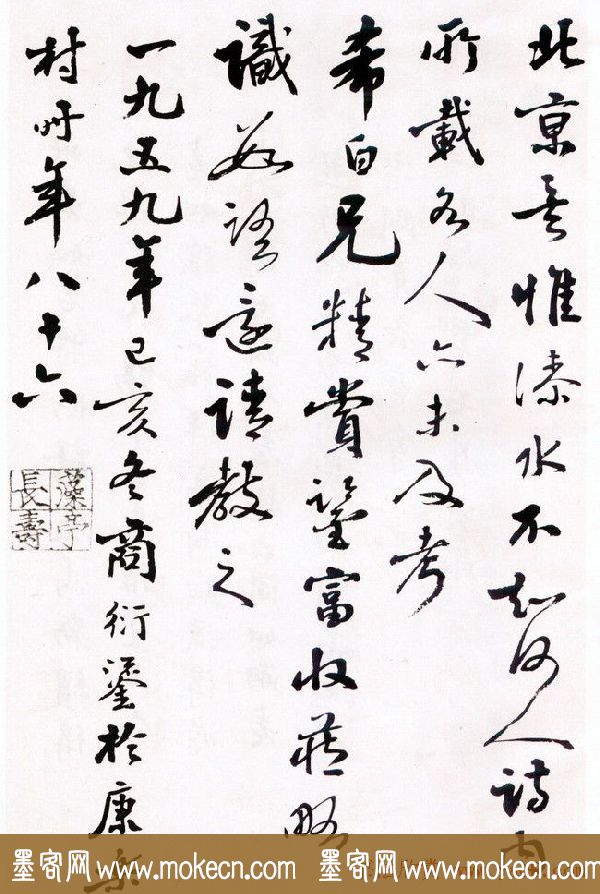 北京惟水不知何人詩内
所載各人亦未及考
希白兄精賞鑒富收藏略
識數語還請教之
一九五九年己亥冬商衍鎏於康樂
村时年八十六
藻亭
長壽
墨客网 www.mokecn.com 墨客网 www.mokecn.com